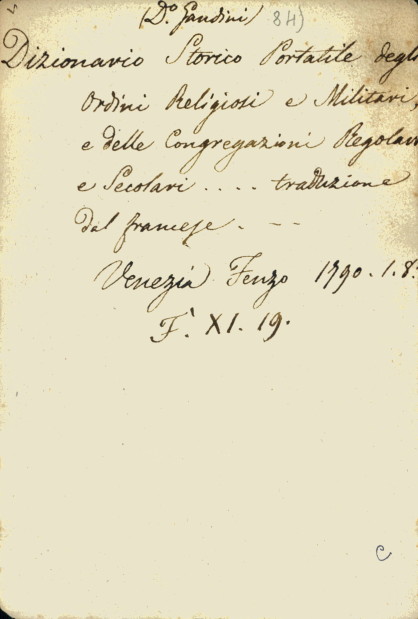 (D.º Gandini) 84)
Dizionario Storico Portatile degli
Ordini Religiosi e Militari,
e delle Congregazioni Regolari
e Secolari .... traduzione
dal francese. --
Venezia Fenzo 1790. 1. 8.
F. XI. 19.
C